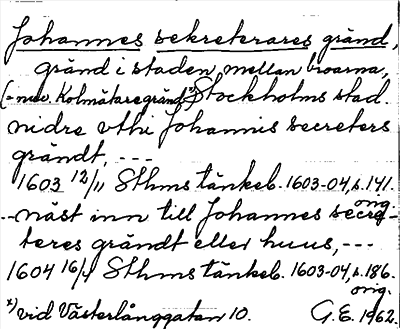 Johannes sekreterares gränd,
gränd i staden mellan broarna,
(= nuv. Kolmätaregränd x) Stockholms stad.
nidre vthi Johannis secreters
grändt, ---
1603 12/11 Sthms tänkeb. 1603-04, s. 141. orig.
--näst inn till Johannes secre-
teres grändt eller huus, ---
1604 16/4 Sthms tänkeb. 1603-04, s. 186. orig.
x) vid Västerlånggatan 10. G.E. 1962.